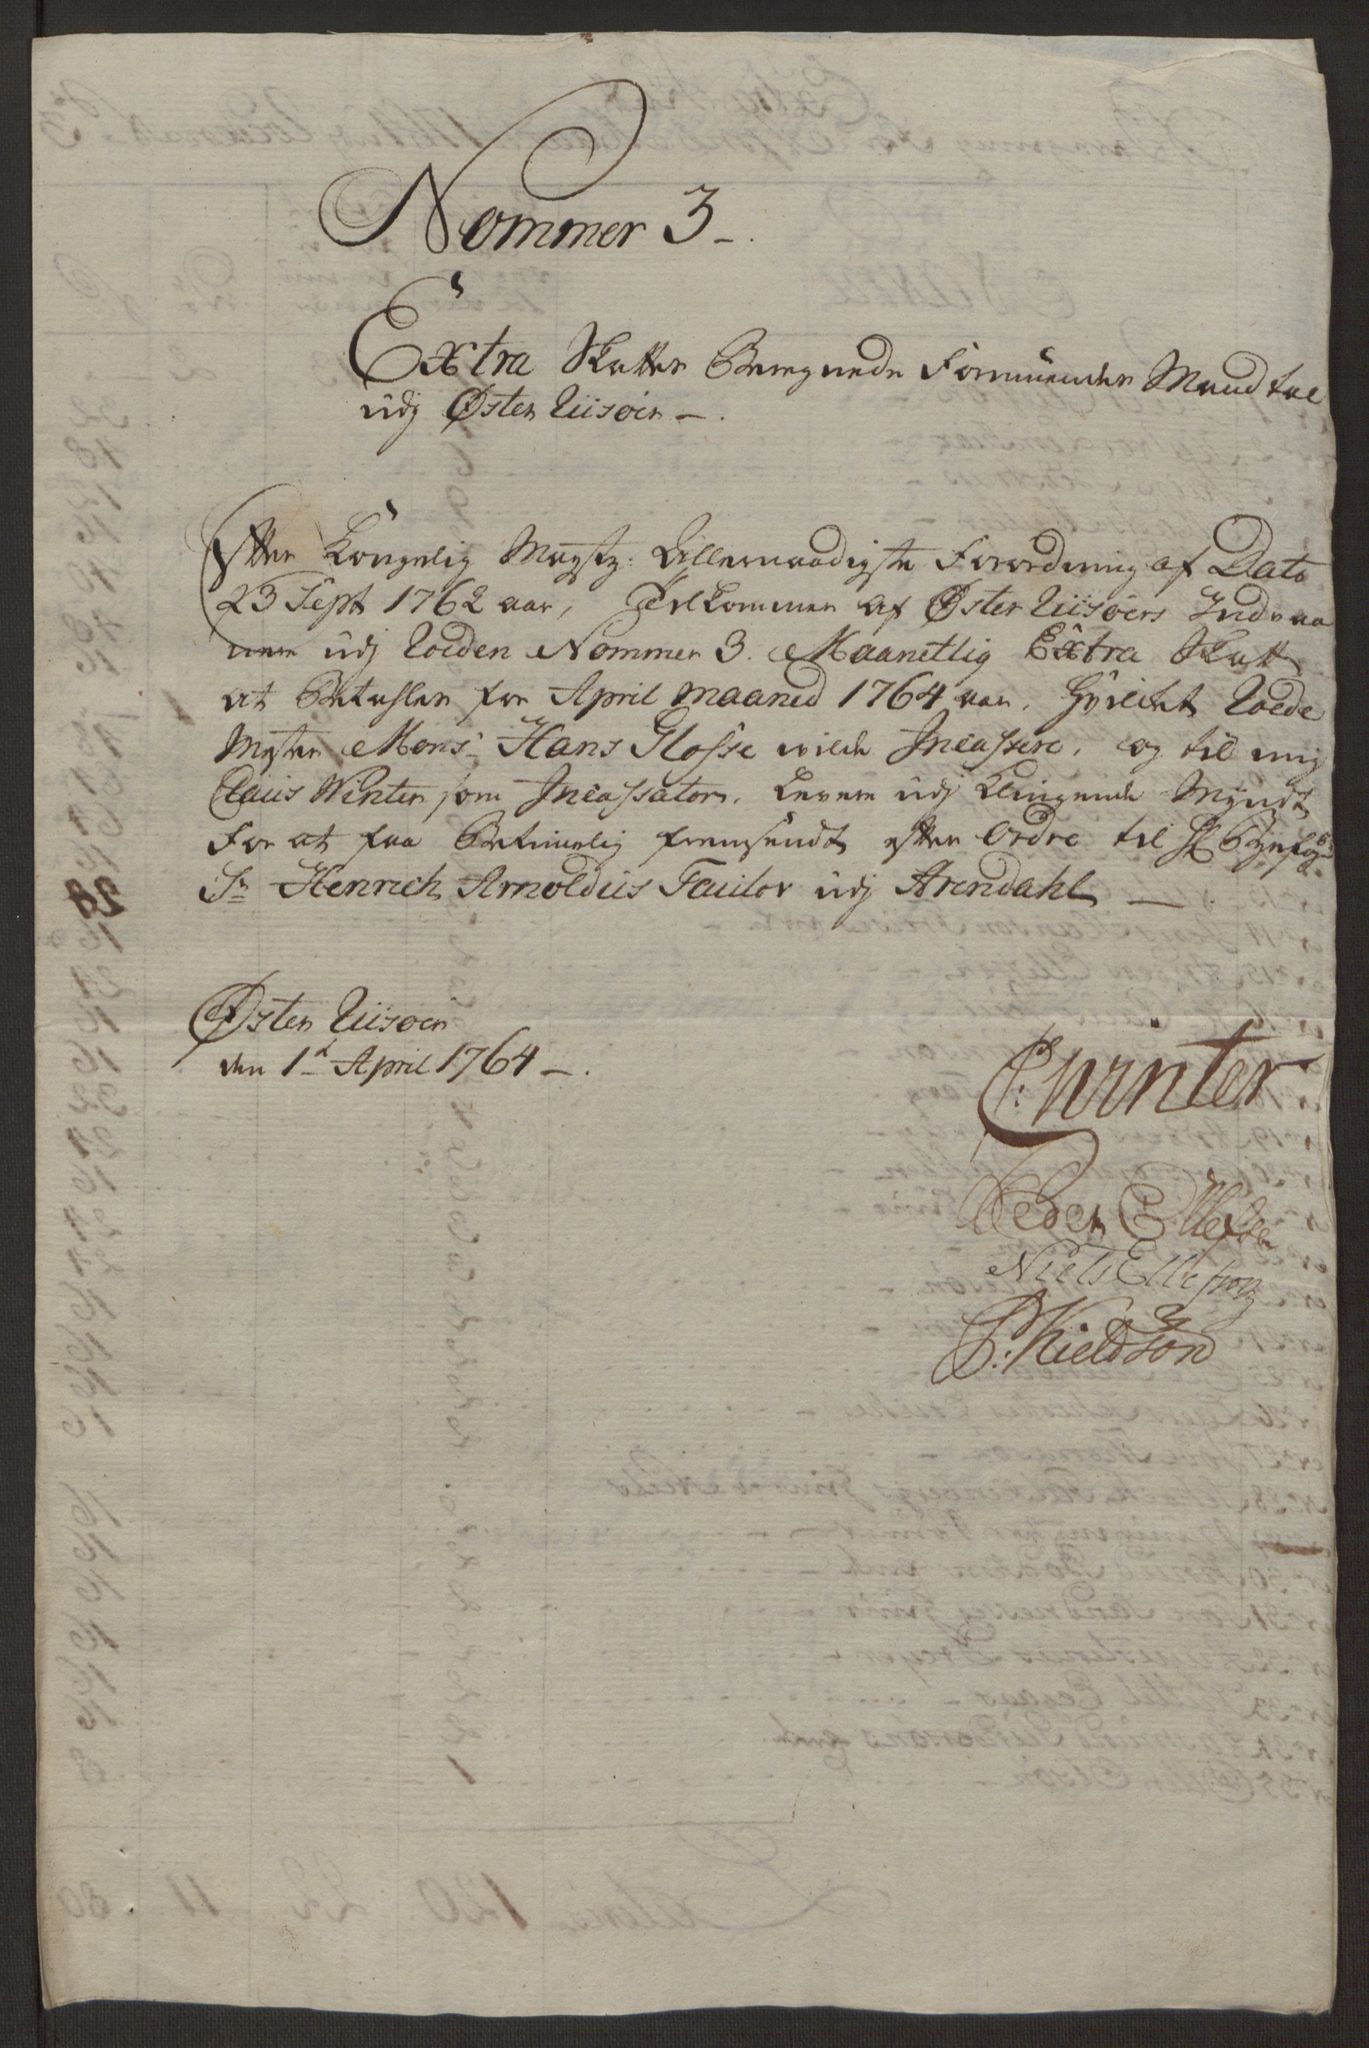 Nommer 3 –.
Extra Skatten Beregnede Formuender Mandtal
udj Øster Riisøer –.
Efter Kongelig Maystz: Allernaadigste Forordning af Dato
23 Sept 1762 aar, Tilkommer af Øster Riisøers Indvaa
nere udj Roeden Nommer 3. Maanetlig Extra Skatt
at Betahler for April maaned 1764 aar. Hvilcket Roede
Mester Monsr Hans Glosse vilde Incassere, og til mig
Claus Winter som Incassator, Levere udj Klingende Myndt
For at faa Betimelig fremsendt efter Ordre til Hr Byefog:
Sr Henrich Arnoldus Taulov udj Arendahl —.
Øster Riisøer
den 1d April 1764 –.
C: Winter
Peder Ellefsen
Niels Ellefsen
P: Kieldson